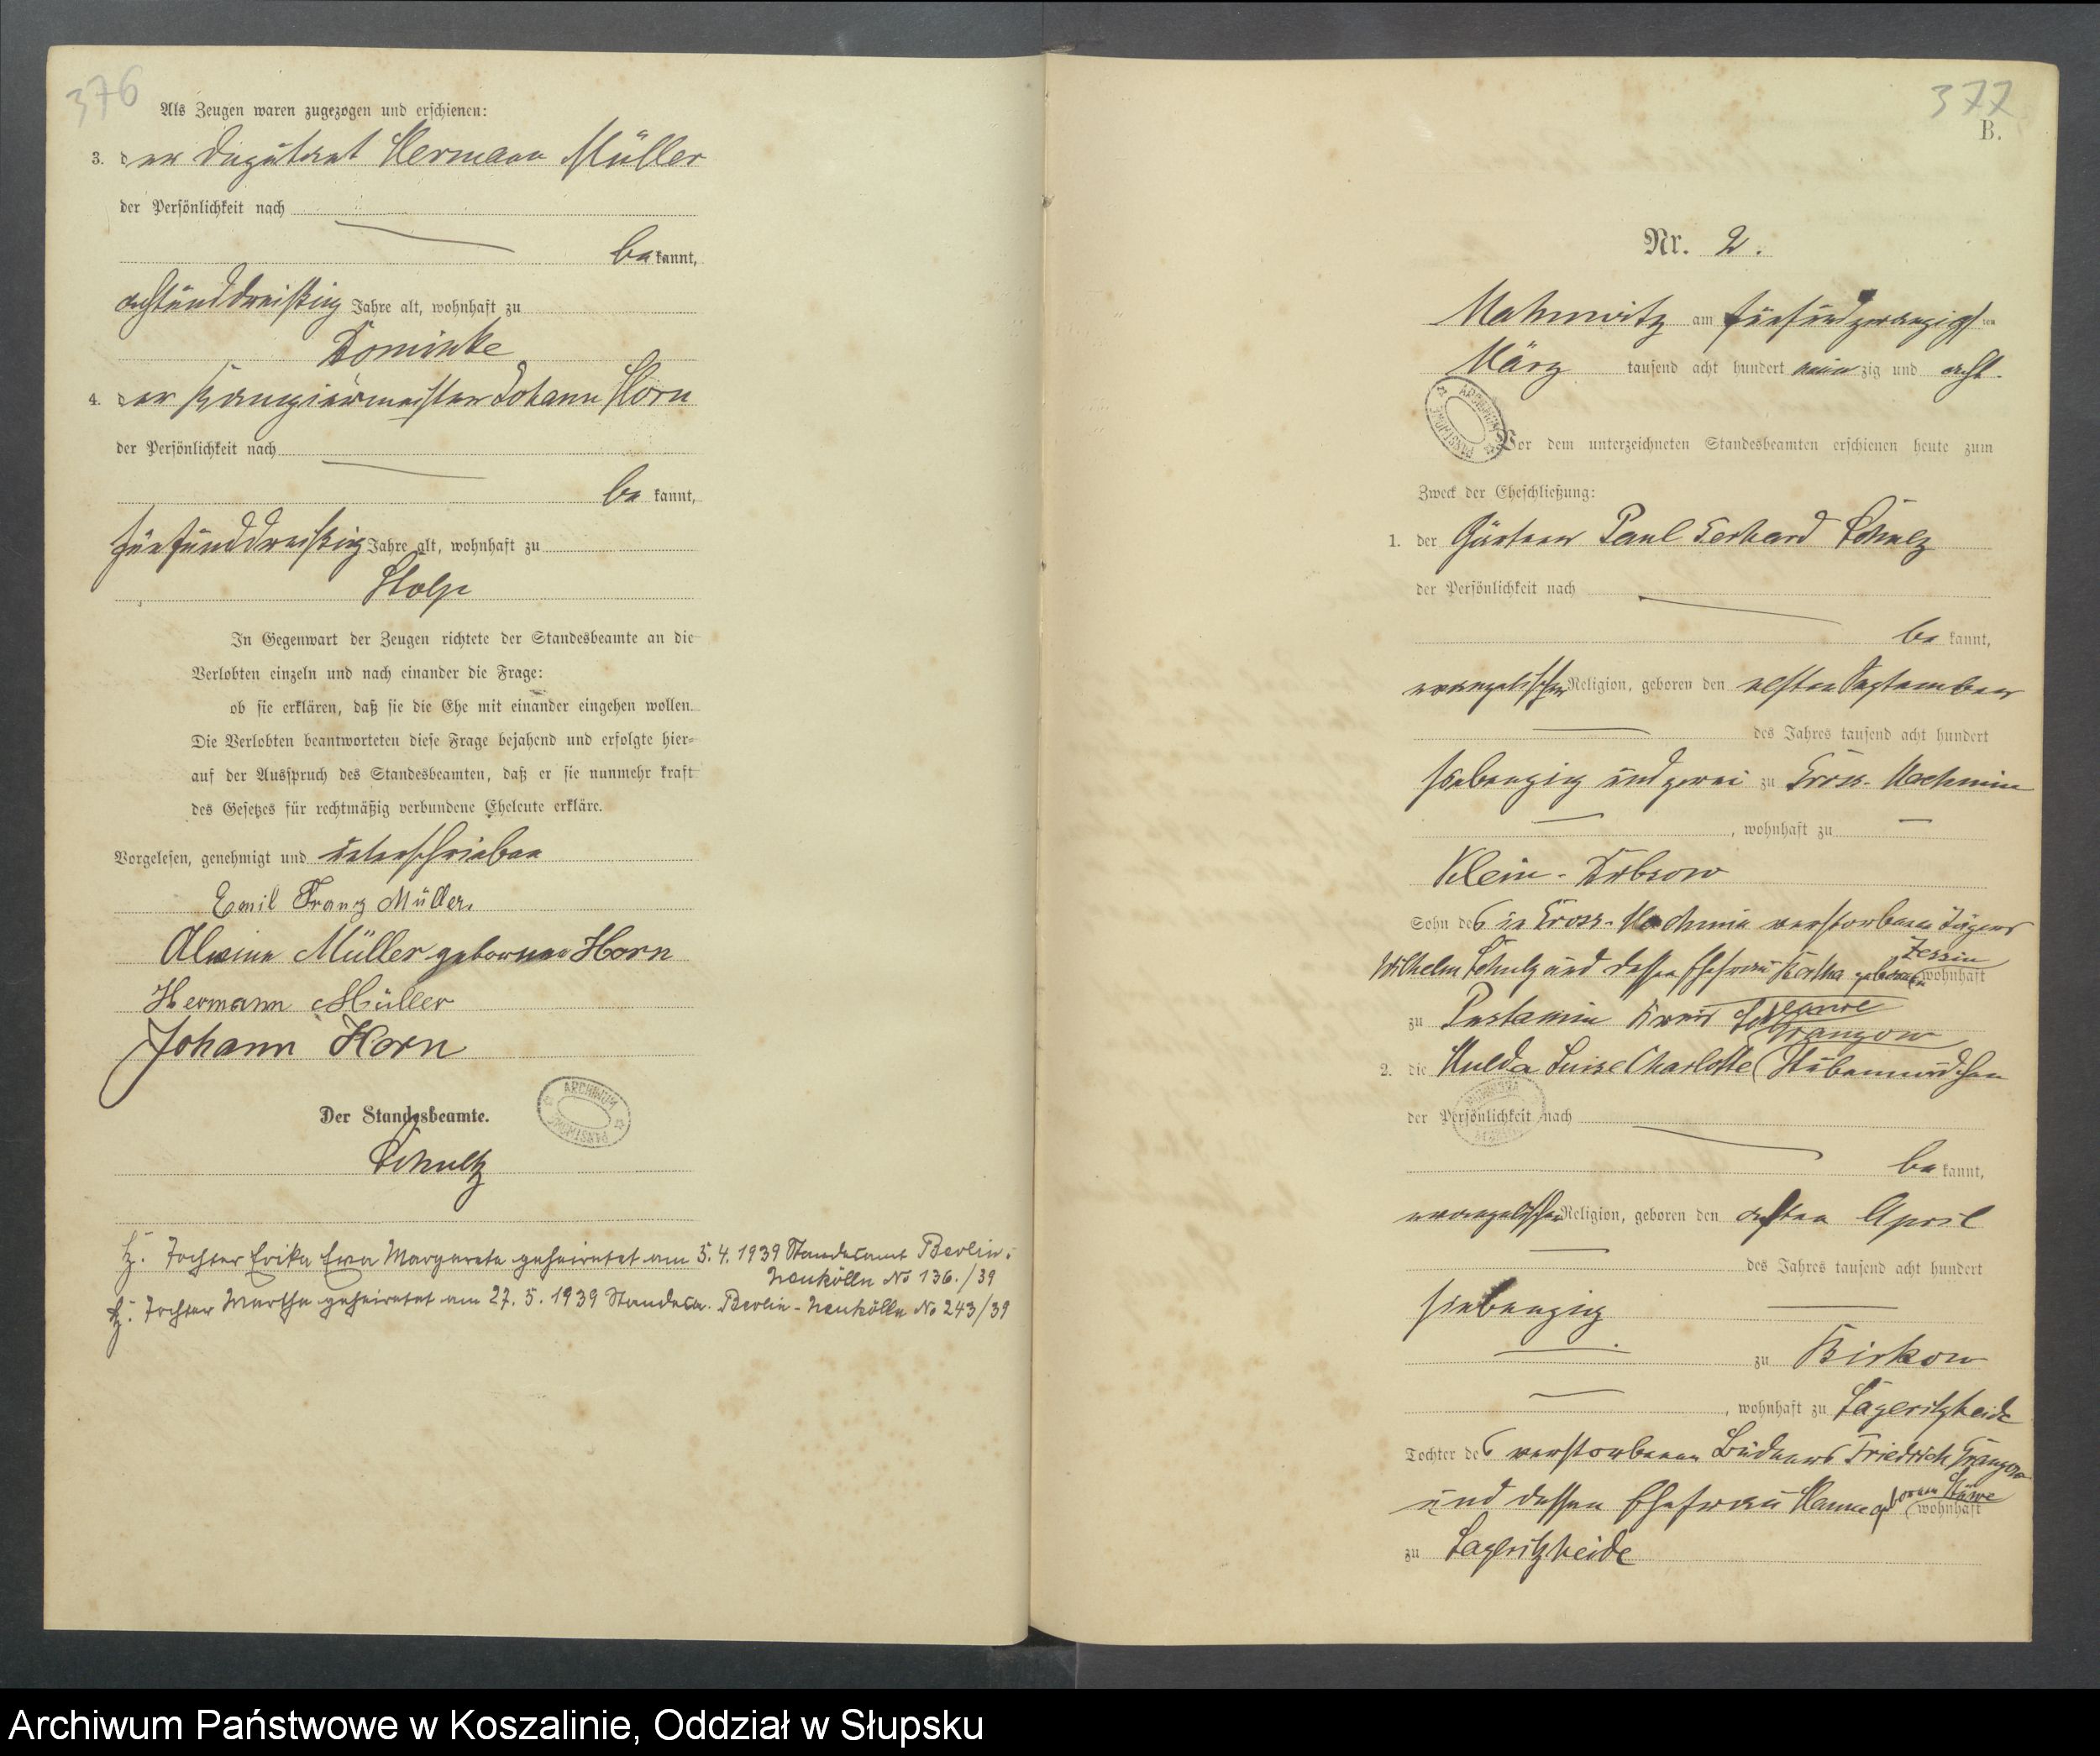 376
Als Zeugen waren zugezogen und erschienen:
3. der Deputant Hermann Müller
der Persönlichkeit nach
be kannt,
achtunddreißig Jahre alt, wohnhaft zu
Dominke
4. der Rangiermeister Johann Horn
der Persönlichkeit nach
be kannt,
fünfunddreißig Jahre alt, wohnhaft zu
Stolp
In Gegenwart der Zeugen richtete der Standesbeamte an die
Verlobten einzeln und nach einander die Frage:
ob sie erklären, daß sie die Ehe mit einander eingehen wollen.
Die Verlobten beantworteten diese Frage bejahend und erfolgte hier-
auf der Ausspruch des Standesbeamten, daß er sie nunmehr kraft
des Gesetzes für rechtmäßig verbundene Eheleute erkläre.
Vorgelesen, genehmigt und unterschrieben
Emil Franz Müller.
Alwine Müller geborene Horn
Hermann Müller
Johann Horn
Der Standesbeamte.
Schultz
ARCHIWUM PAŃSTWOWE
Tochter Erika Ewa Margarete geheiratet am 5.4.1939 Standesamt Berlin-
Neukölln No 136./39
Tochter Martha geheiratet am 27.5.1939 Standesa. Berlin-Neukölln No 243/39
377
B.
Nr. 2.
Mahnwitz am fünfundzwanzigsten
März tausend acht hundert neun zig und acht.
ARCHIWUM PAŃSTWOWE
Vor dem unterzeichneten Standesbeamten erschienen heute zum
Zweck der Eheschließung:
1. der Gärtner Paul Gerhard Schulz
der Persönlichkeit nach
be kannt,
evangelischer Religion, geboren den elften September
des Jahres tausend acht hundert
siebenzig und zwei zu Gross-Machmin
, wohnhaft zu
Klein-Dübsow
Sohn des in Gross-Machmin verstorbenen Jägers
Wilhelm Schulz und dessen Ehefrau Bertha geborenen Zessin wohnhaft
zu Pustamin Kreis Schlawe
Grangow
2. die Hulda Luise Charlotte (Stubenmädchen
der Persönlichkeit nach
ARCHIWUM
be kannt,
evangelischer Religion, geboren den achten April
des Jahres tausend acht hundert
siebenzig
zu Birkow
, wohnhaft zu Lageritzheide
Tochter des verstorbenen Büdners Friedrich Grangow
und dessen Ehefrau Hanna geborenen wohnhaft
zu Lageritzheide
Archiwum Państwowe w Koszalinie, Oddział w Słupsku